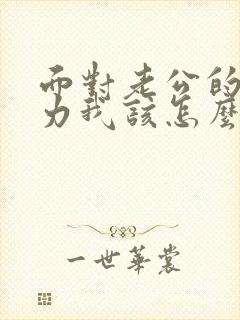 而對老公的
力我該怎麼
一世華裳